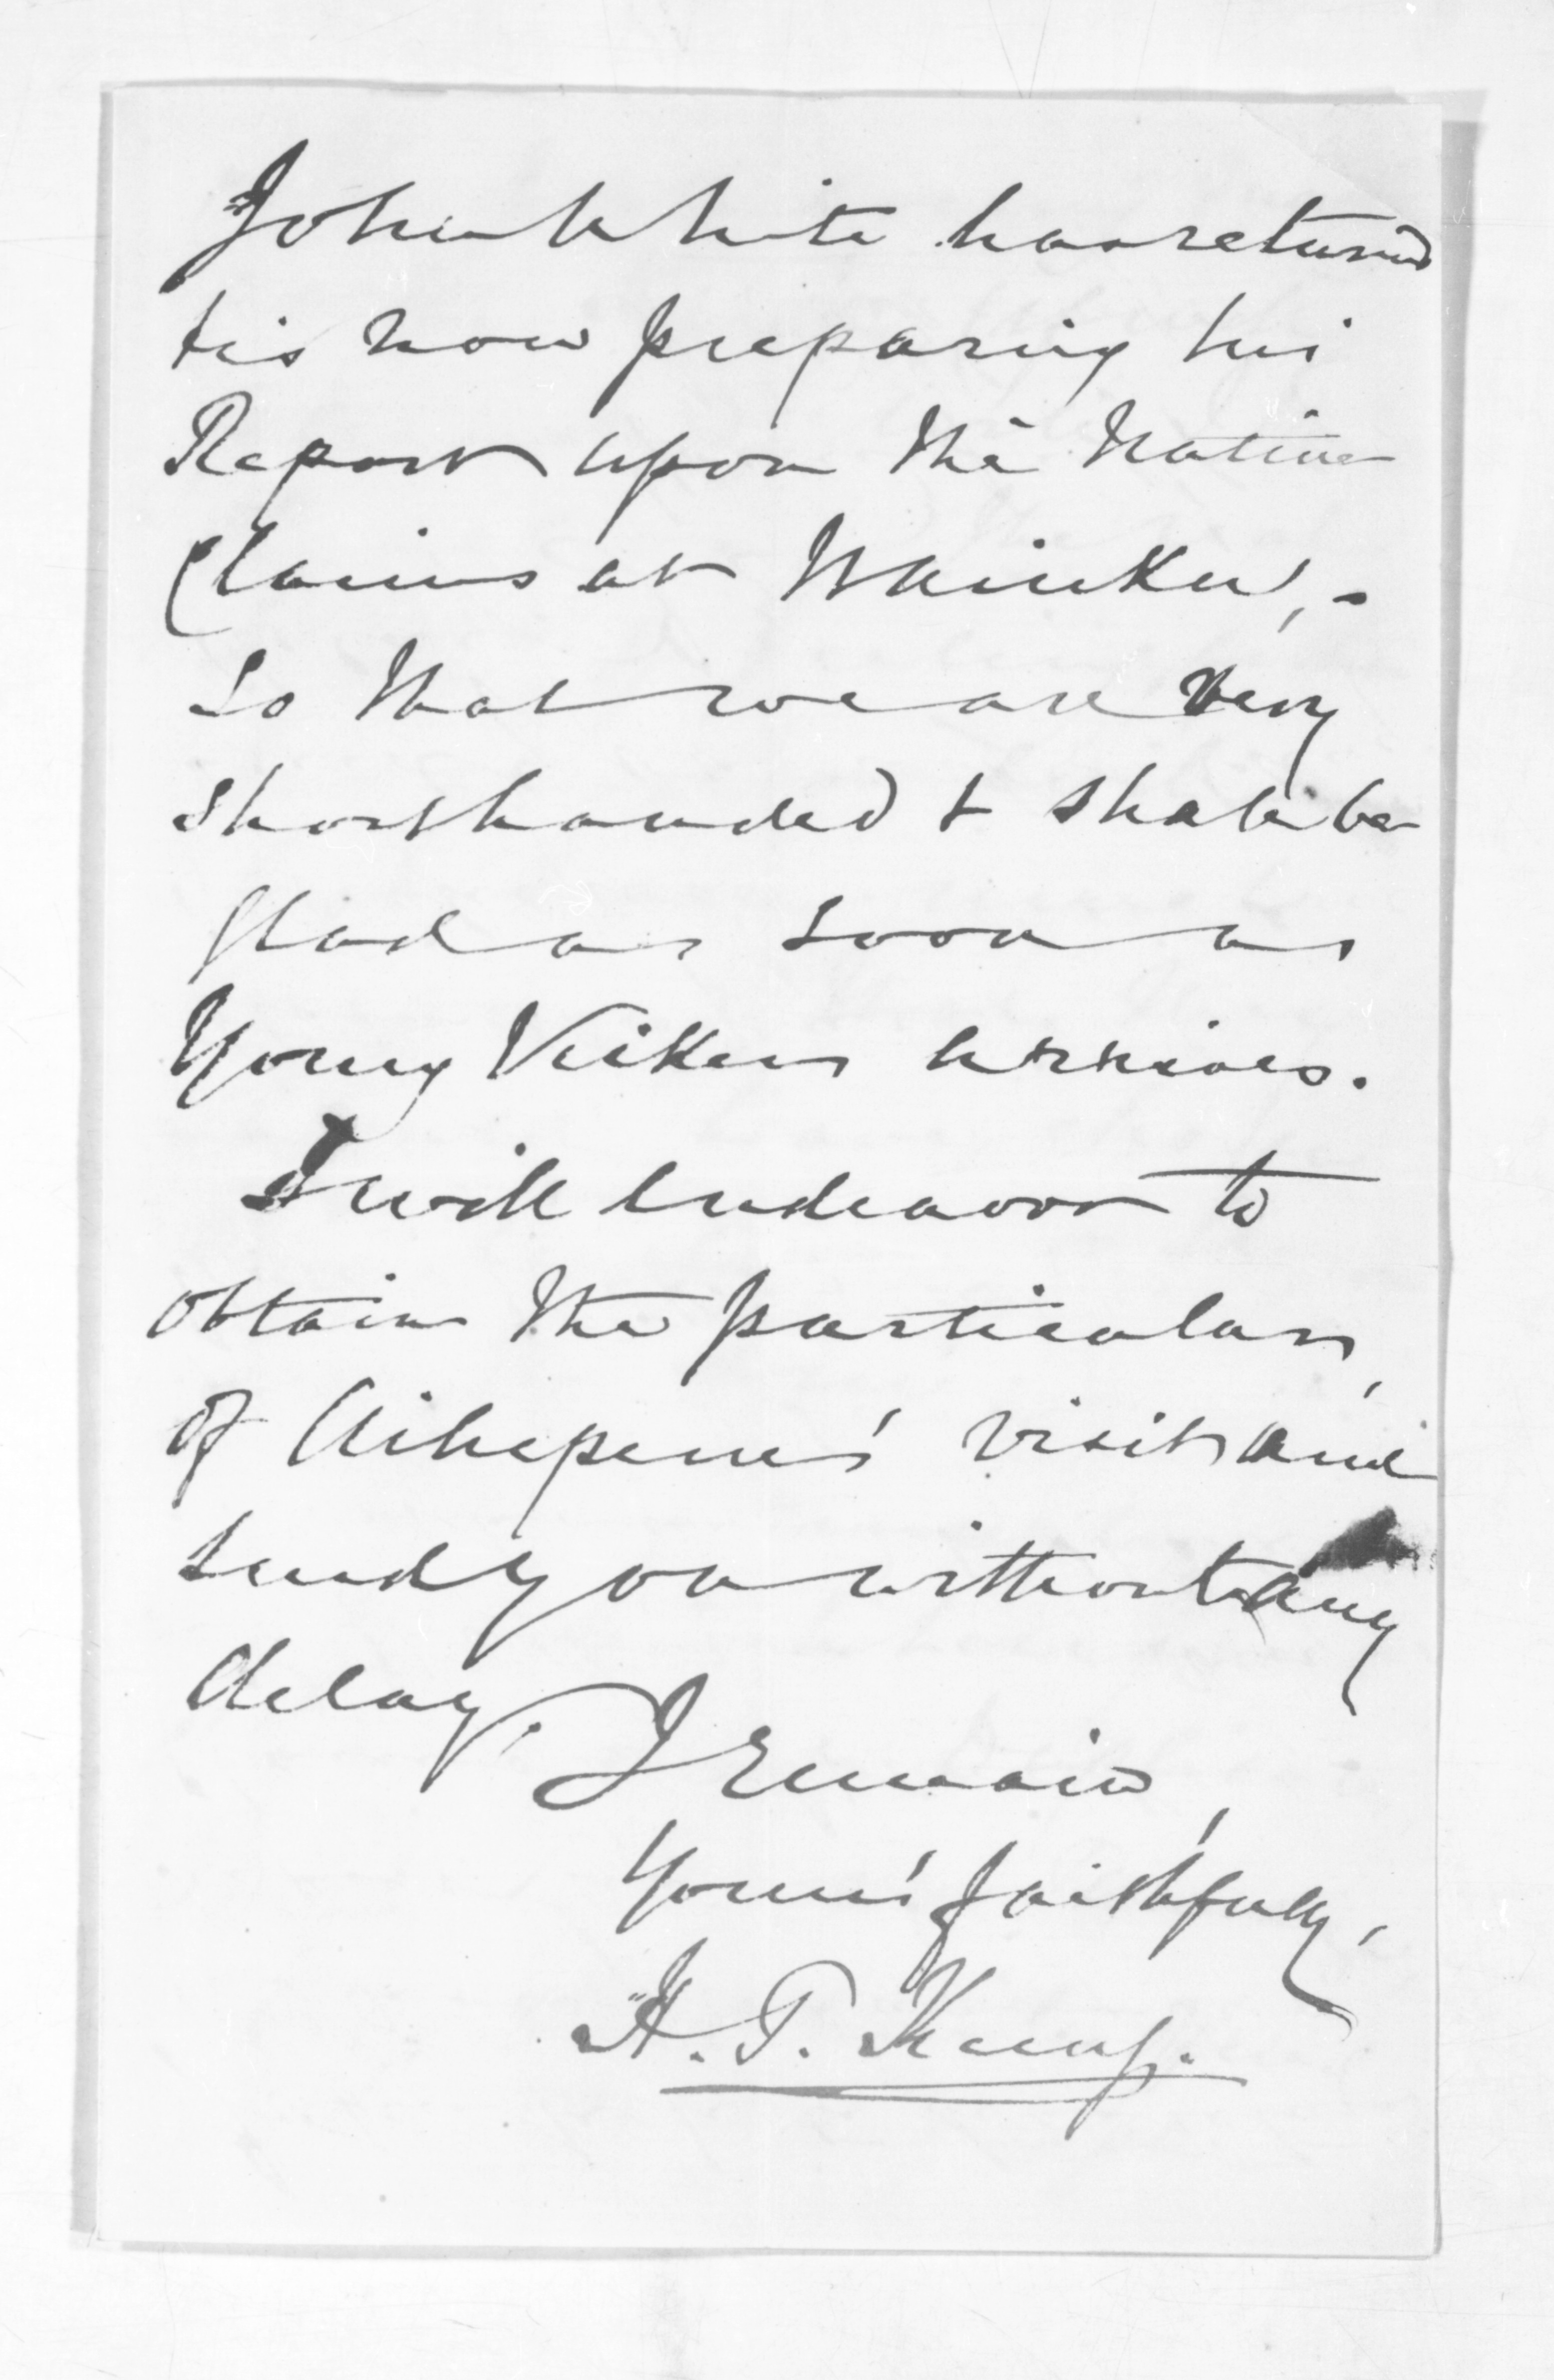 John White has returned
& is now preparing his
Report upon the Native
Claims at Waiuku, -
So that we are very
Shorthanded & shall be
glad as soon as
Young arrives.
I will endeavor to
obtain the particulars,
of visit and
send you without any
delay.
I remain,
Your's faithfully,
H. T. Kemp.